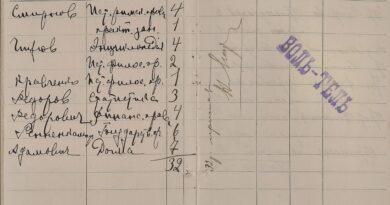 Смирнов Ист. римск. права 4
практ. зан. 1
Энциклопедія 4
Ист. филос. пр. 2
Кравченко Ист. филос. пр. 1
Федоров Статистика 3
Федорович Финанс. права 4
Ренненкампф Государств. 6
Адамович Догма 7
32
ВОЛЬ-ТЕЛЬ